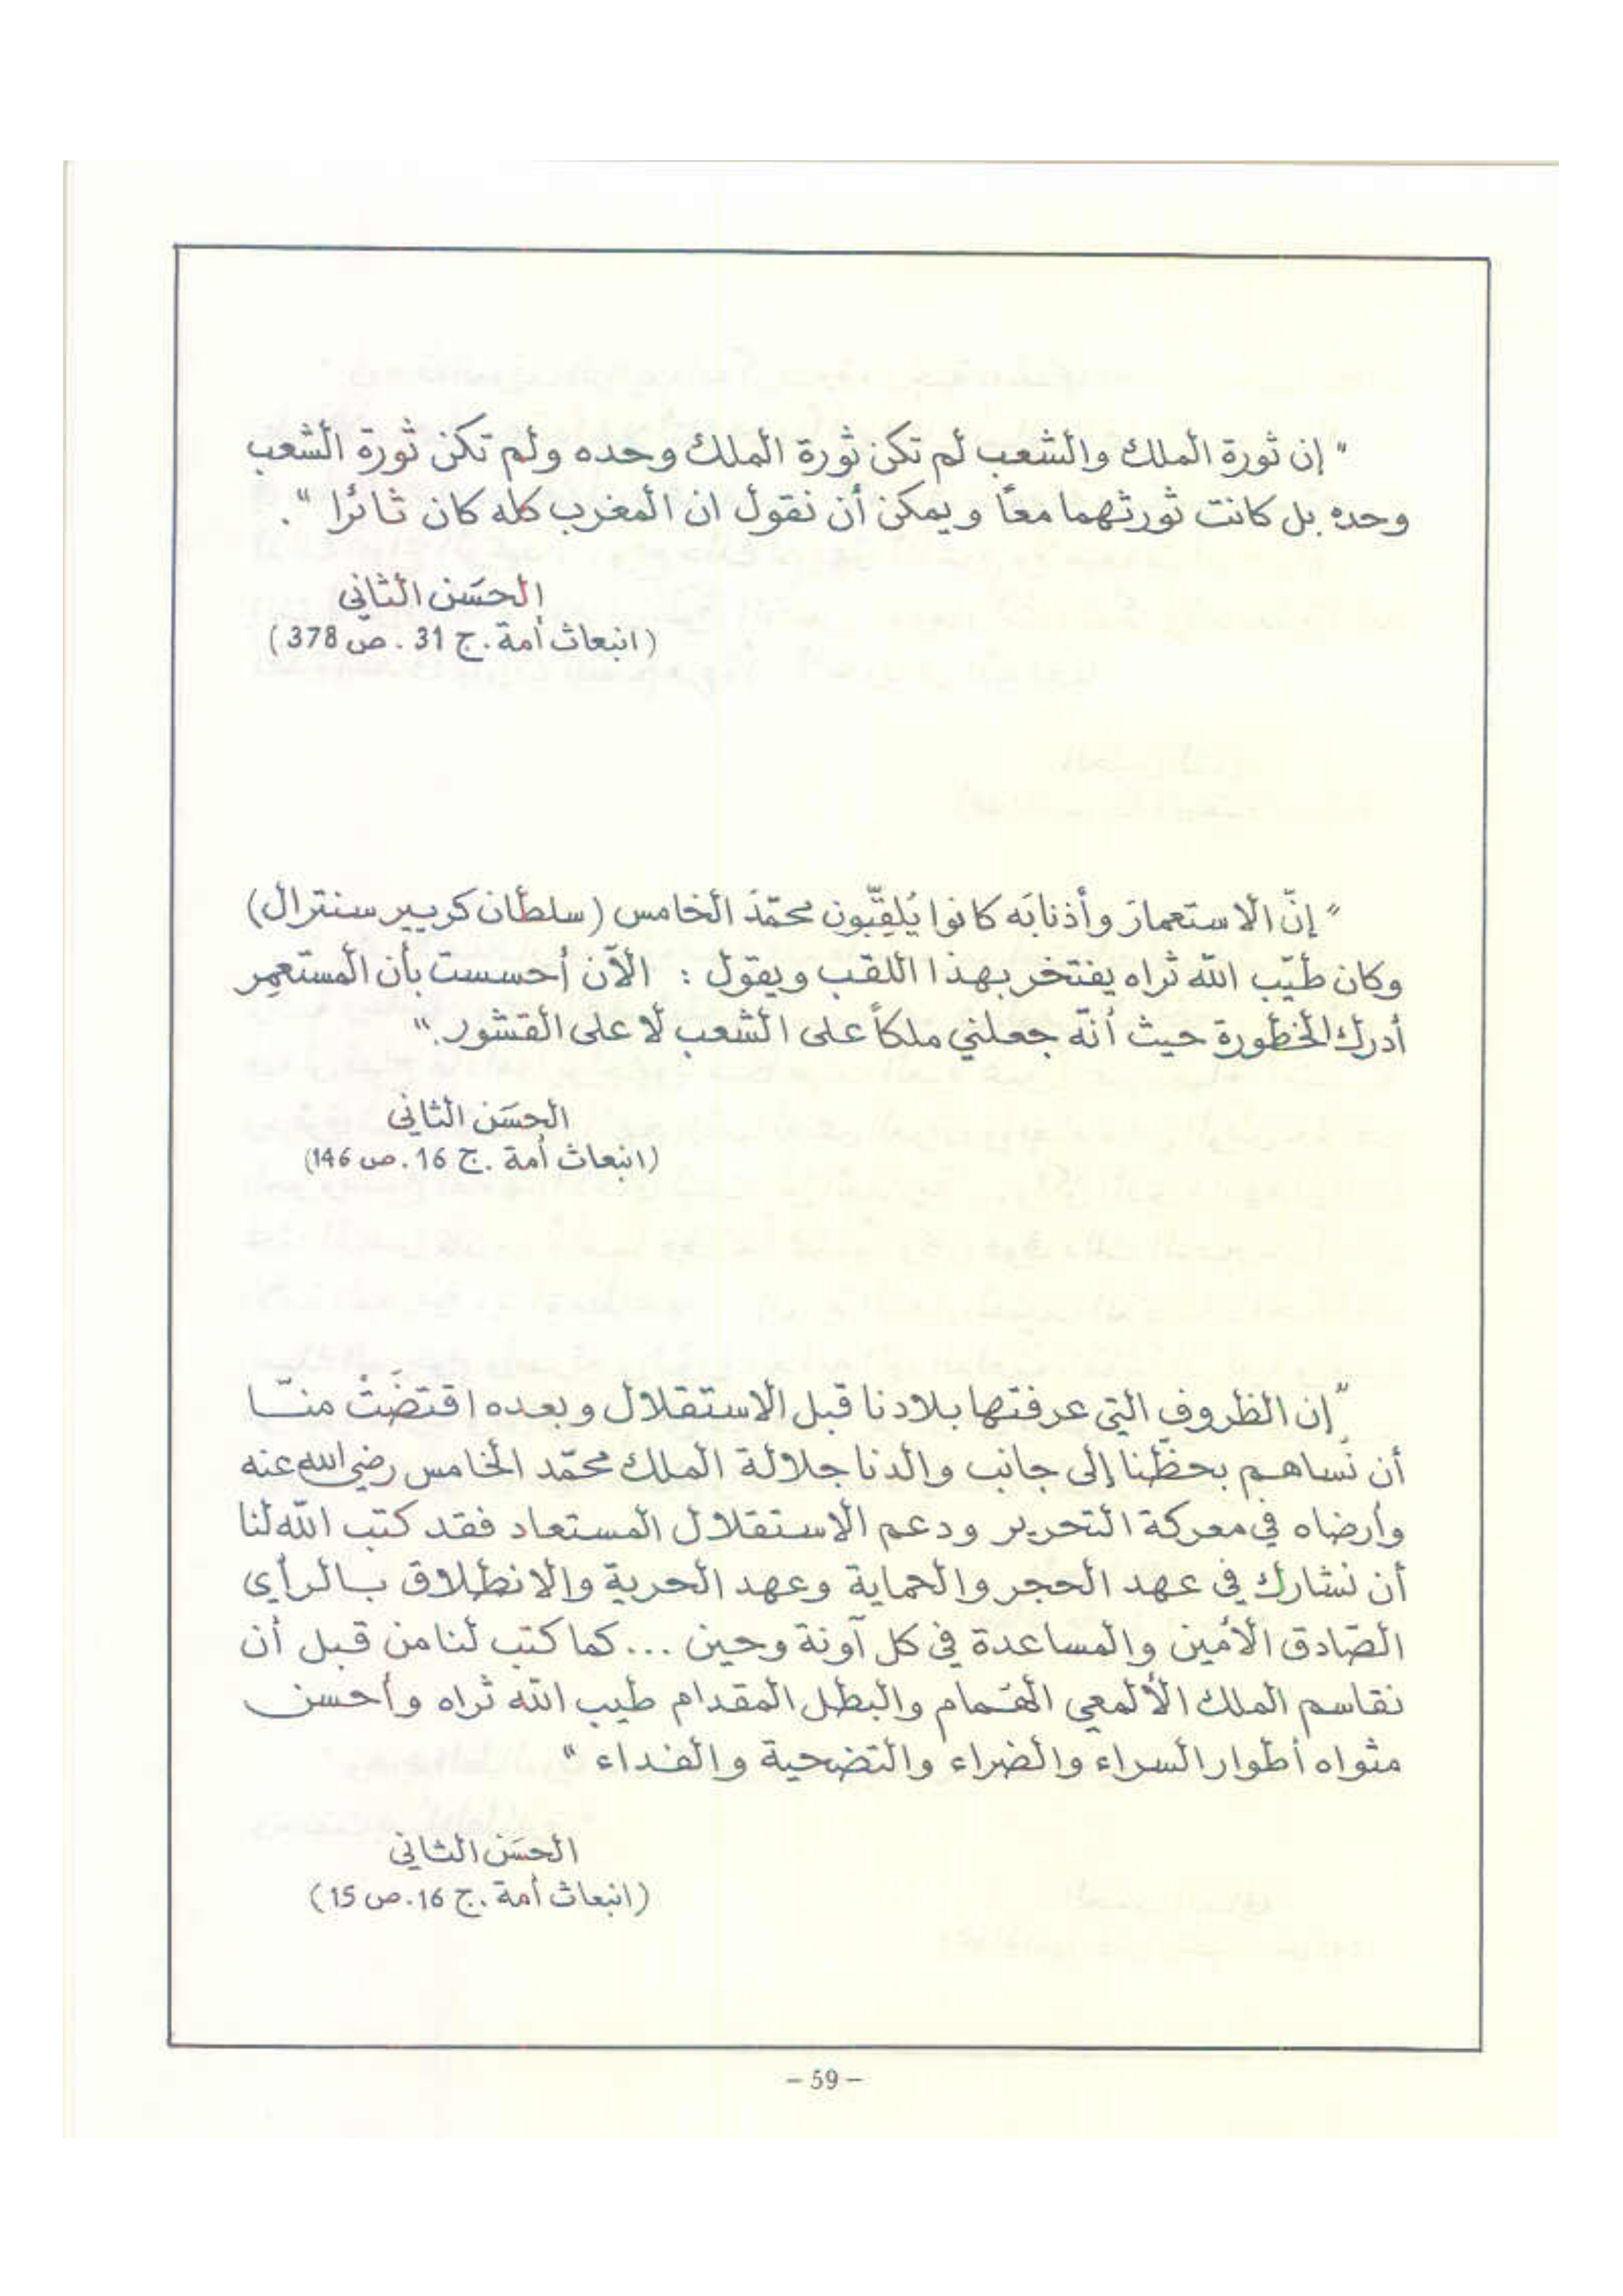 " إن ثورة الملك والشعب لم تكن ثورة الملك وحده ولم تكن ثورة الشعب
وحده بل كانت ثورتهما معًا ويمكن أن نقول ان المغرب كله كان ثائرا ".
الحسَن الثاني
(انبعاث أمة . ج 31 . ص 378)
" إنّ الاستعمارَ وأذنابَه كانوا يُلقِّبون محمّدَ الخامس (سلطان كريير سنترال)
وكان طيّب الله ثراه يفتخر بهذا اللقب ويقول : الآن أحسست بأن المستعمِر
أدرك الخطورة حيث أنّه جعلني ملكاً على الشعب لا على القشور."
الحسَن الثاني
(انبعاث أمة . ج 16 . ص 146)
"إن الظروف التي عرفتها بلادنا قبل الاستقلال وبعده اقتضَتْ منّا
أن نُساهم بحظِّنا إلى جانب والدنا جلالة الملك محمّد الخامس رضي الله عنه
وأرضاه في معركة التحرير ودعم الاستقلال المستعاد فقد كتب الله لنا
أن نشارك في عهد الحجر والحماية وعهد الحرية والانطلاق بالرأي
الصّادق الأمين والمساعدة في كل آونة وحين ... كما كتب لنا من قبل أن
نقاسم الملك الألمعي الهُمام والبطل المقدام طيب الله ثراه وأحسن
مثواه أطوار السراء والضراء والتضحية والفداء "
الحسَن الثاني
(انبعاث أمة . ج 16 . ص 15)
– 59 –